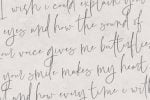 I wish I could explain your
eyes and how the sound of
your voice gives me butterflies
your smile makes my heart
and how every time I